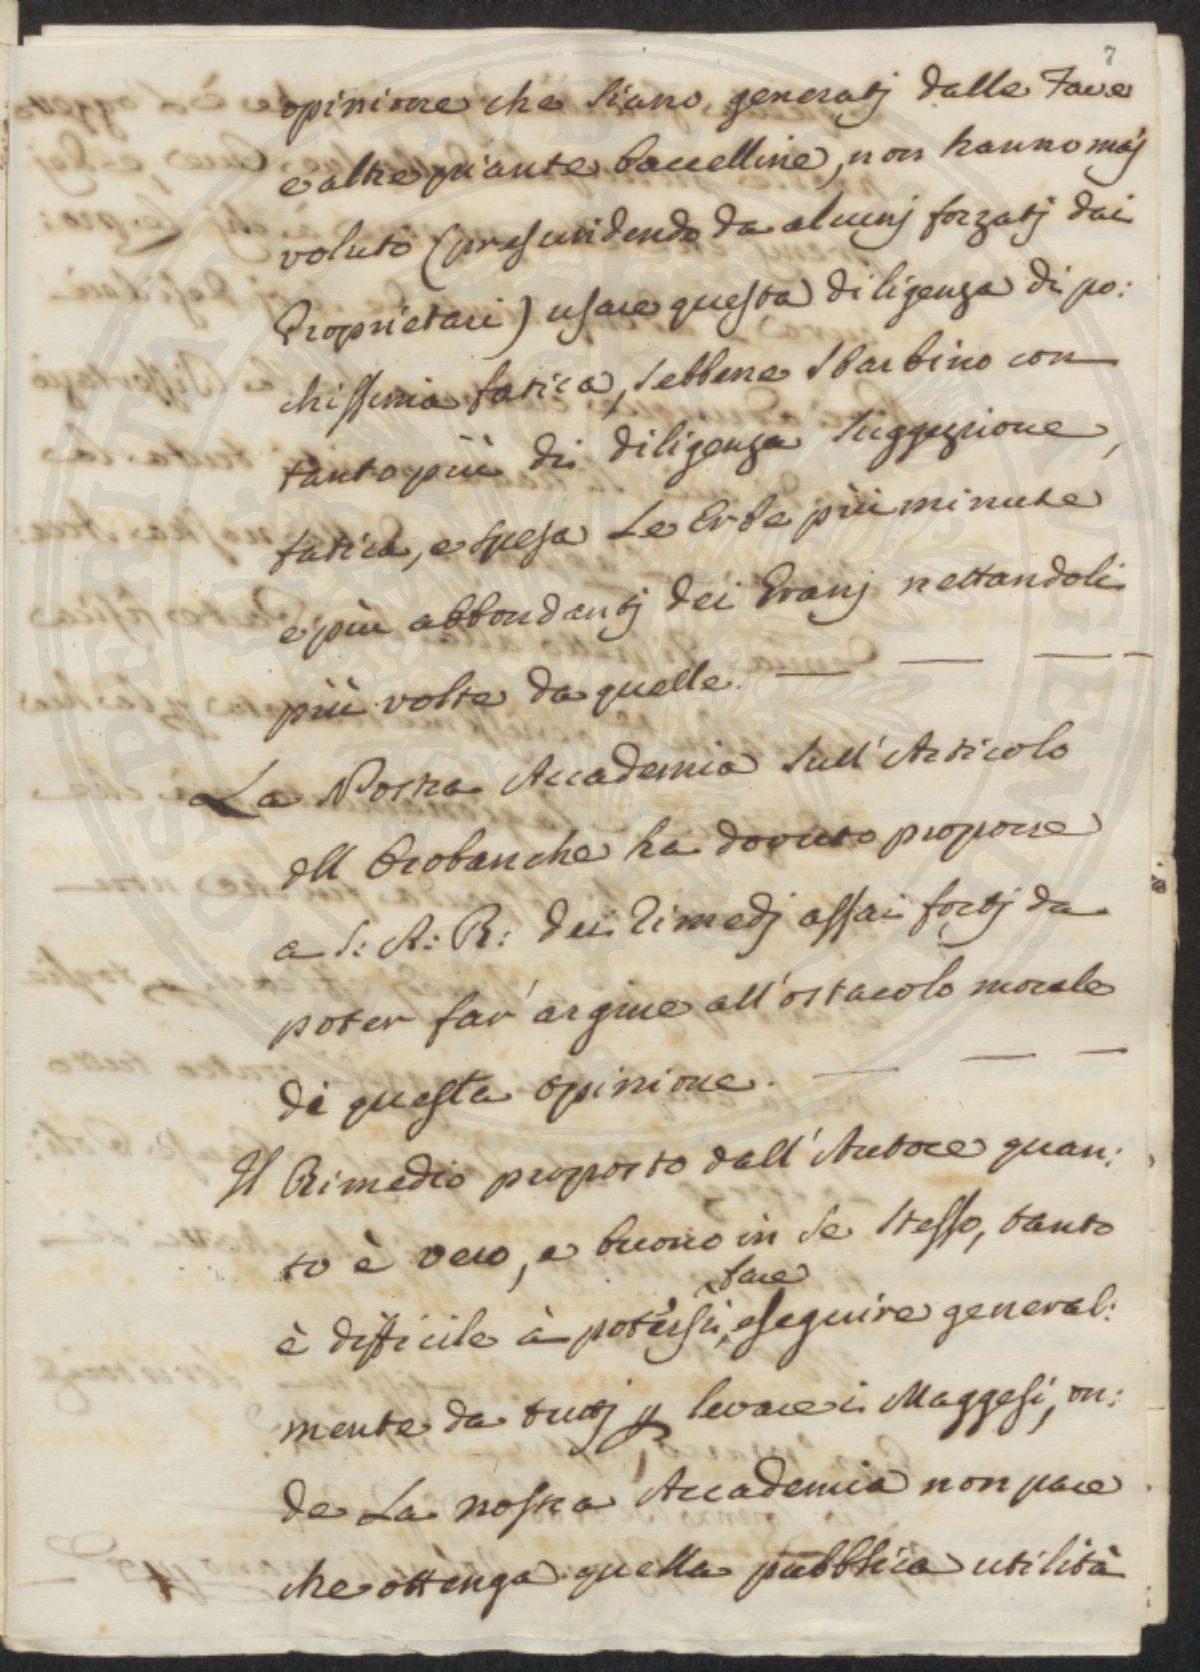 7
opinione che siano generatj dalle Fave
e altre piante baccelline, non hanno maj
voluto (prescindendo da alcunj forzatj dai
Proprietari) usare questa diligenza di po:
chissima fatica, sebbene sbarbino con
tanto più di diligenza suggezione,
fatica, e spesa Le Erbe più minute
e più abbondantj dei Granj nettandoli
più volte da quelle. — — —
La Nostra Accademia sull'Articolo
dll Orobanche ha dovuto proporre
a S: A: R: dei Rimedj assai fortj da
poter far argine all'ostacolo morale
di questa opinione. — — —
Il Rimedio proposto dall'Autore quan:
to è vero, e buono in se stesso, tanto
fare
è difficile à potersi, eseguire general:
mente da tuttj p levare i Maggesi, on:
de La nostra Accademia non pare
che ottenga quella pubblica utilità